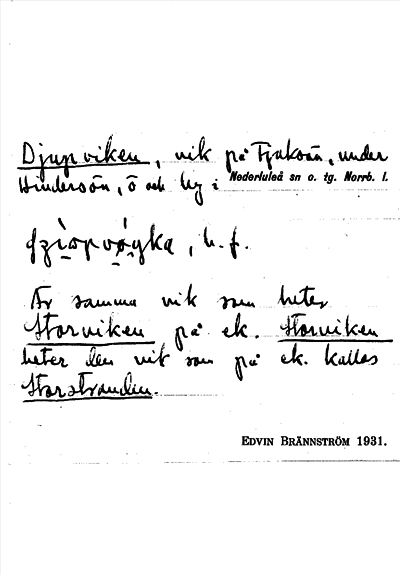 Djupviken, vik på Tjuksön, under
Hindersön, ö och by i Nederluleå sn o. tg. Norrb. l.
, h. f.
Är samma vik som heter
Storviken på ek. Storviken
heter den vik som på ek. kallas
Storstranden.
EDVIN BRÄNNSTRÖM 1931.